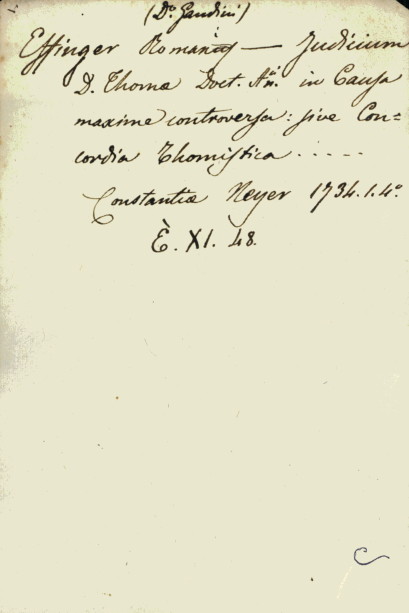 (D.º Gaudini)
Effinger Romanus — Judicium
D. Thomæ Doct. An. in Causa
maxime controversa: sive Con=
cordia Thomistica . . . . .
Constantiæ Neyer 1734. 1. 4º.
È. XI. 48.